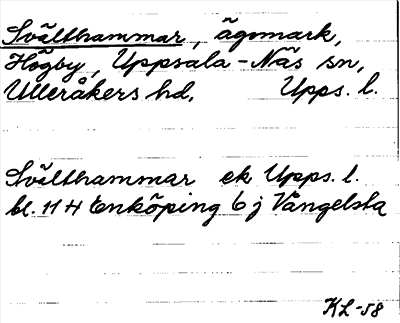 Svälthammar, ägomark,
Högby, Uppsala-Näs sn,
Ulleråkers hd, Upps. l.
Svälthammar ek Upps. l.
bl. 11 H Enköping 6 j Vängelsta
KL-58